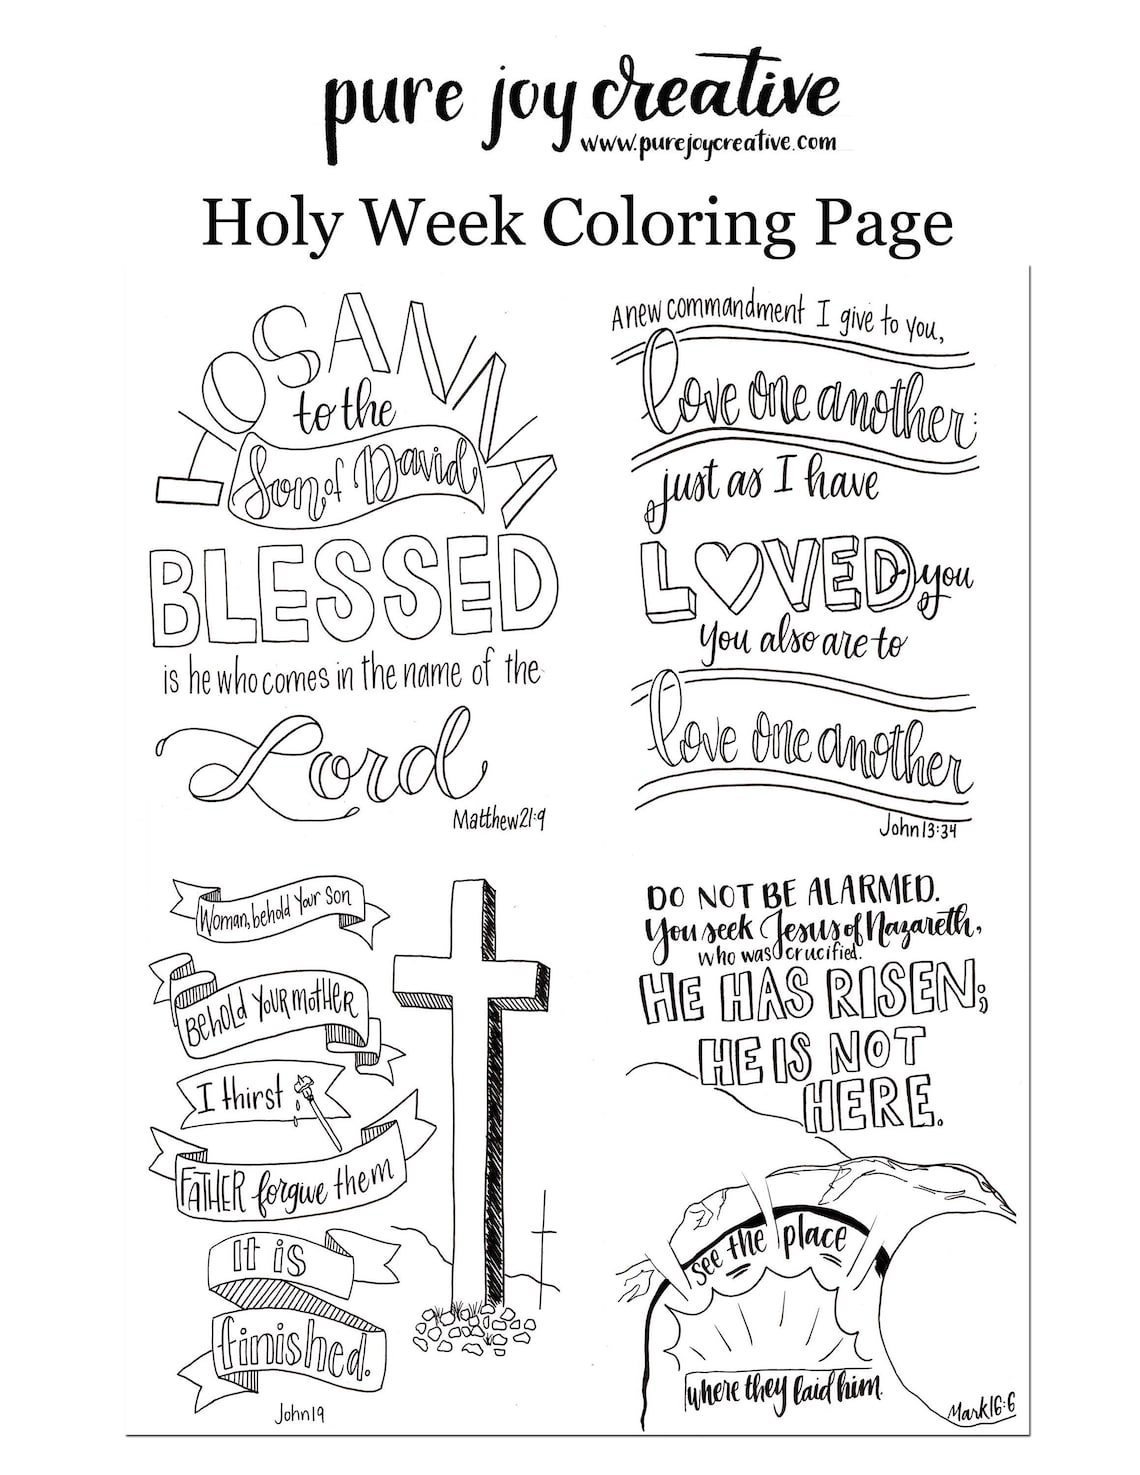 pure joy creative
www.purejoycreative.com
Holy Week Coloring Page
HOSANNA
to the
Son of David
BLESSED
is he who comes in the name of the
Lord
Matthew 21:9
A new commandment I give to you,
love one another:
just as I have
LOVED you
you also are to
love one another
John 13:34
Woman, behold Your Son
Behold YOUR MOTHER
I thirst
FATHER forgive them
It is
finished.
John 19
DO NOT BE ALARMED.
You seek Jesus of Nazareth,
who was crucified.
HE HAS RISEN;
HE IS NOT
HERE.
see the place
where they laid him.
Mark 16:6